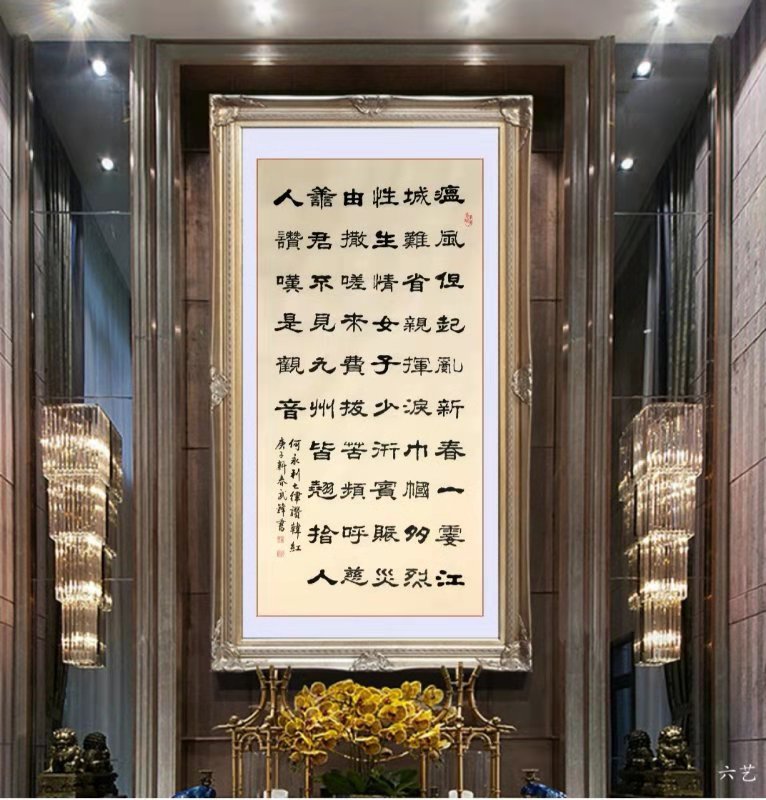 瘟風但起亂新春一霎江
城難省親揮淚巾幗多烈
性生情女子少術賓賑災
由撒嗟來費拔苦頻呼慈
譱君不見九州皆翹指人
人讚嘆是觀音
何永利七律讚韓紅
庚子新春武鋒書
六艺